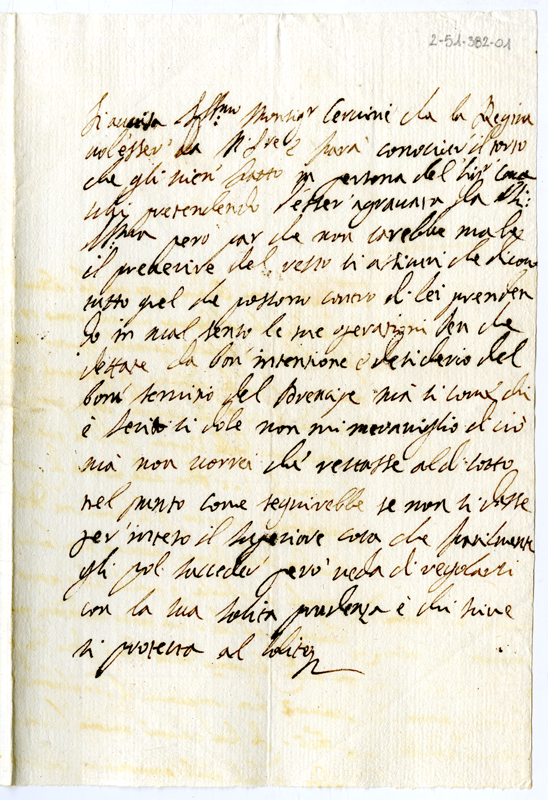 2-51-382-01
Si avvisa Monsigr Cervini che la Regina
vol esser da farà conoscier il torto
che gli vien fatto in persona del
pretendendo d'esser agravata da
però par che non sarebbe male
il prevenire del resto si assicuri che dicon
tutto quel che possono contro di lei prenden
do in mal senso le sue operazioni ben che
dettate da bon intenzione e desiderio del
bon servizio del Prencipe mà si come chi
è si dole non mi meraviglio di ciò
mà non vorrei che restasse al di sotto
nel punto come seguirebbe se non si dasse
per inteso il superiore cosa che facilmente
gli pol succeder però veda di regolarsi
con la sua solita prudenza e chi scrive
si protesta al solito